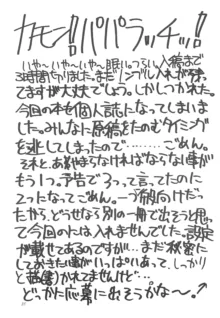 カモン!!パパラッチッ!!
いや〜いや〜いや〜眠い。つらい。入稿まで
3時間切りました。まだノンブル入れが残っ
てますが大丈夫でしょう。しかしつかれた。
今回の本も個人誌になってしまいま
した。みんなに原稿をたのむタイミング
を逃してしまったので………ごめん。
それと、あやまらなければならない事が
もう1つ。予告で3つって言ってたのに
2つになってごめん。一つ傾向けだっ
たから、どうせなら別の一冊で出そうと思っ
て今回のには入れませんでした。設定
が載せてあるのですが…まだ秘密に
しておきたい事がいっぱいあって、しっかり
と かれてませんけど…
どっかに応募に出そうかな〜。↑